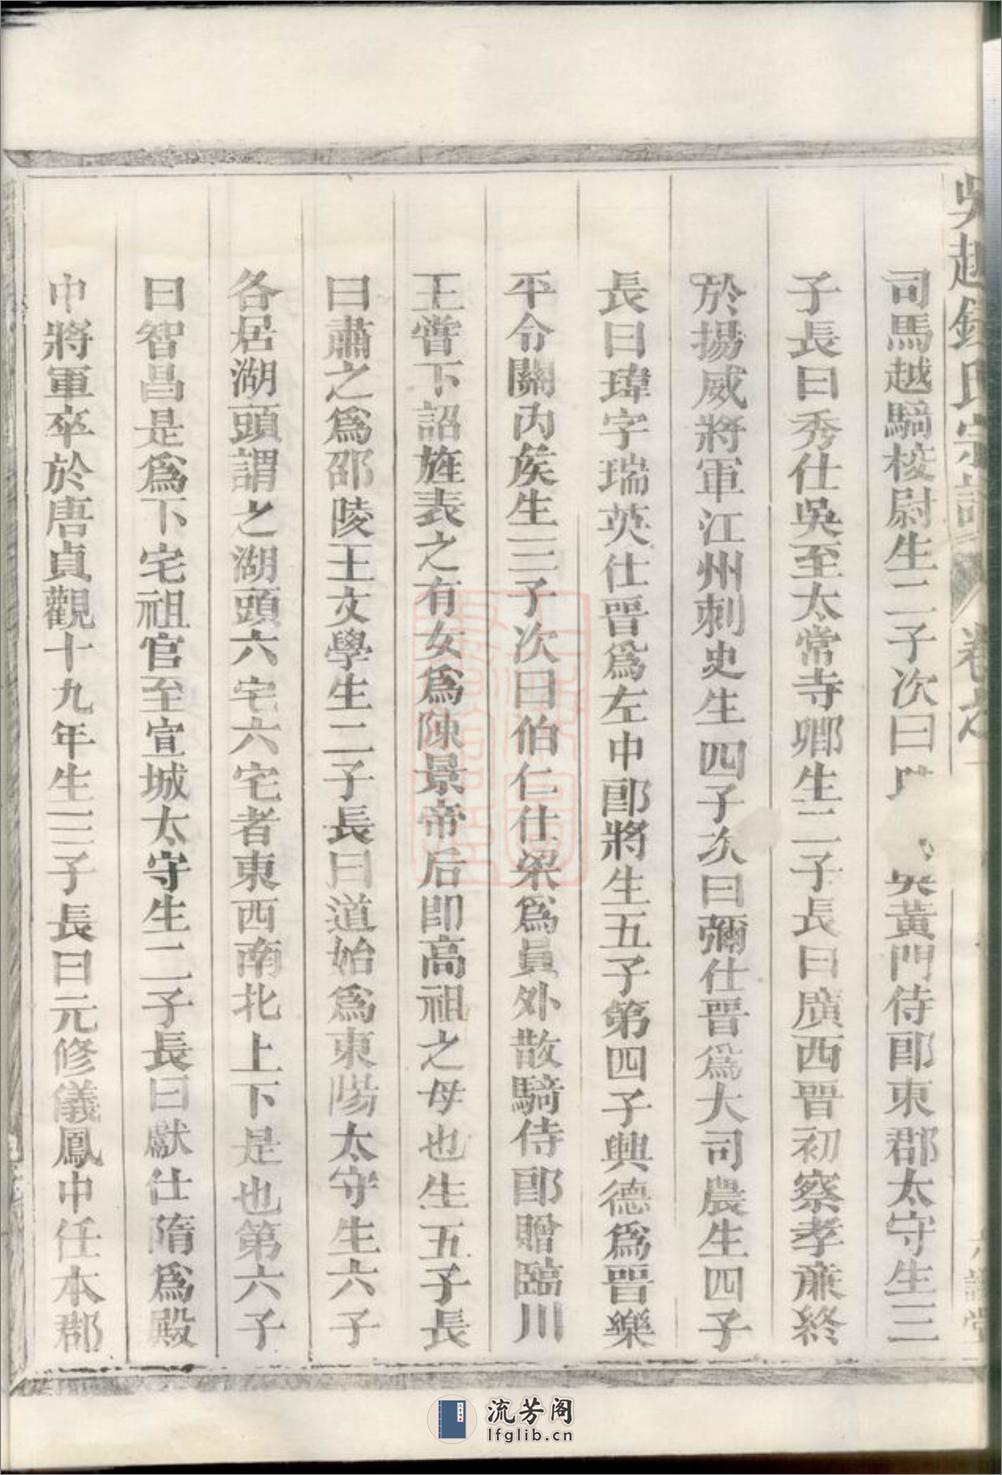 吳越錢氏宗譜 卷之
司馬越騎校尉生二子次曰 黃門侍郎東郡太守生三
子長曰秀仕吳至太常寺卿生二子長曰廣西晉初察孝亷終
於揚威將軍江州刺史生四子次曰彌仕晉爲大司農生四子
長曰瑋字瑞英仕晋爲左中郎將生五子第四子興德爲晋樂
平令關內侯生三子次曰伯仁仕梁爲員外散騎侍郎贈臨川
王嘗下詔旌表之有女爲陳景帝后卽高祖之母也生五子長
曰肅之爲邵陵王文學生二子長曰道始爲東陽太守生六子
各居湖頭謂之湖頭六宅六宅者東西南北上下是也第六子
曰智昌是爲下宅祖官至宣城太守生二子長曰獻仕隋爲殿
中將軍卒於唐貞觀十九年生三子長曰元修儀鳳中任本郡
流芳阁
lfglib.cn